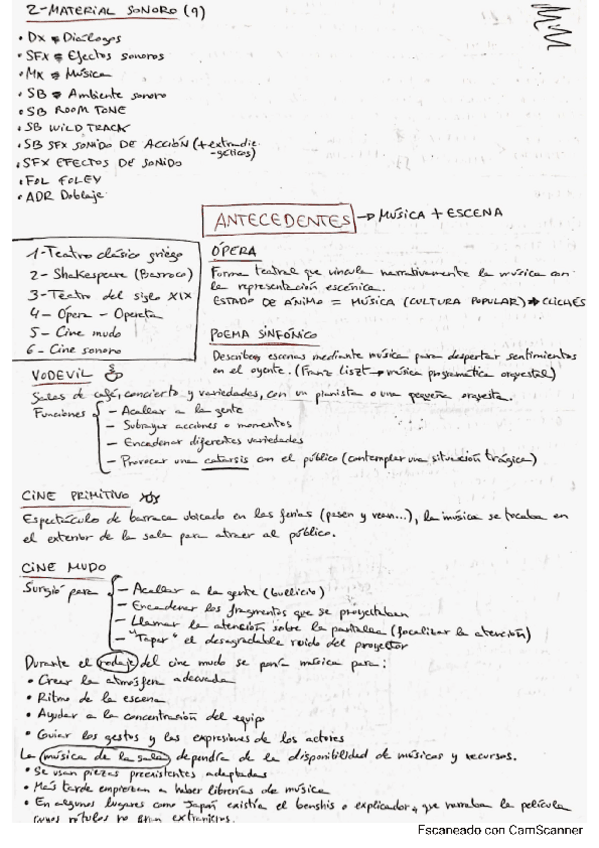 2-MATERIAL SONORO (9)
• DX → Diálogos
• SFX → Efectos sonoros
• MX → Música
• SB → Ambiente sonoro
• SB ROOM TONE
• SB WILD TRACK
• SB SFX SONIDO DE ACCIÓN (+extradie
-géticos)
• SFX EFECTOS DE SONIDO
• FOL FOLEY
• ADR Doblaje
ANTECEDENTES → MÚSICA + ESCENA
1-Teatro clásico griego
2- Shakespeare (Barroco)
3-Teatro del siglo XIX
4- Opera - Opereta
5- Cine mudo
6- Cine sonoro
ÓPERA
Forma teatral que vincula narrativamente la música con
la representación escénica.
ESTADO DE ÁNIMO = MÚSICA (CULTURA POPULAR) → CLICHÉS
POEMA SINFÓNICO
Describen escenas mediante música para despertar sentimientos
en el oyente. (Franz Liszt → música programática orquestal)
VODEVIL
Salas de café, concierto y variedades, con un pianista o una pequeña orquesta.
Funciones
- Acallar a la gente
- Subrayar acciones o momentos
- Encadenar diferentes variedades
- Provocar una catarsis con el público (contemplar una situación trágica)
CINE PRIMITIVO
Espectáculo de barraca ubicado en las ferias (pasen y vean...), la música se tocaba en
el exterior de la sala para atraer al público.
CINE MUDO
Surgió para
- Acallar a la gente (bullicio)
- Encadenar los fragmentos que se proyectaban
- Llamar la atención sobre la pantalla (focalizar la atención)
- "Tapar" el desagradable ruido del proyector
Durante el rodaje del cine mudo se ponía música para:
• Crear la atmósfera adecuada
• Ritmo de la escena
• Ayudar a la concentración del equipo
• Guiar los gestos y las expresiones de los actores
La música de la sala dependía de la disponibilidad de músicos y recursos.
• Se usan piezas preexistentes adaptadas
• Más tarde empiezan a haber librerías de música
• En algunos lugares como Japón existía el benshis o explicador, que narraba la película
rótulos no eran extranjeros.
Escaneado con CamScanner